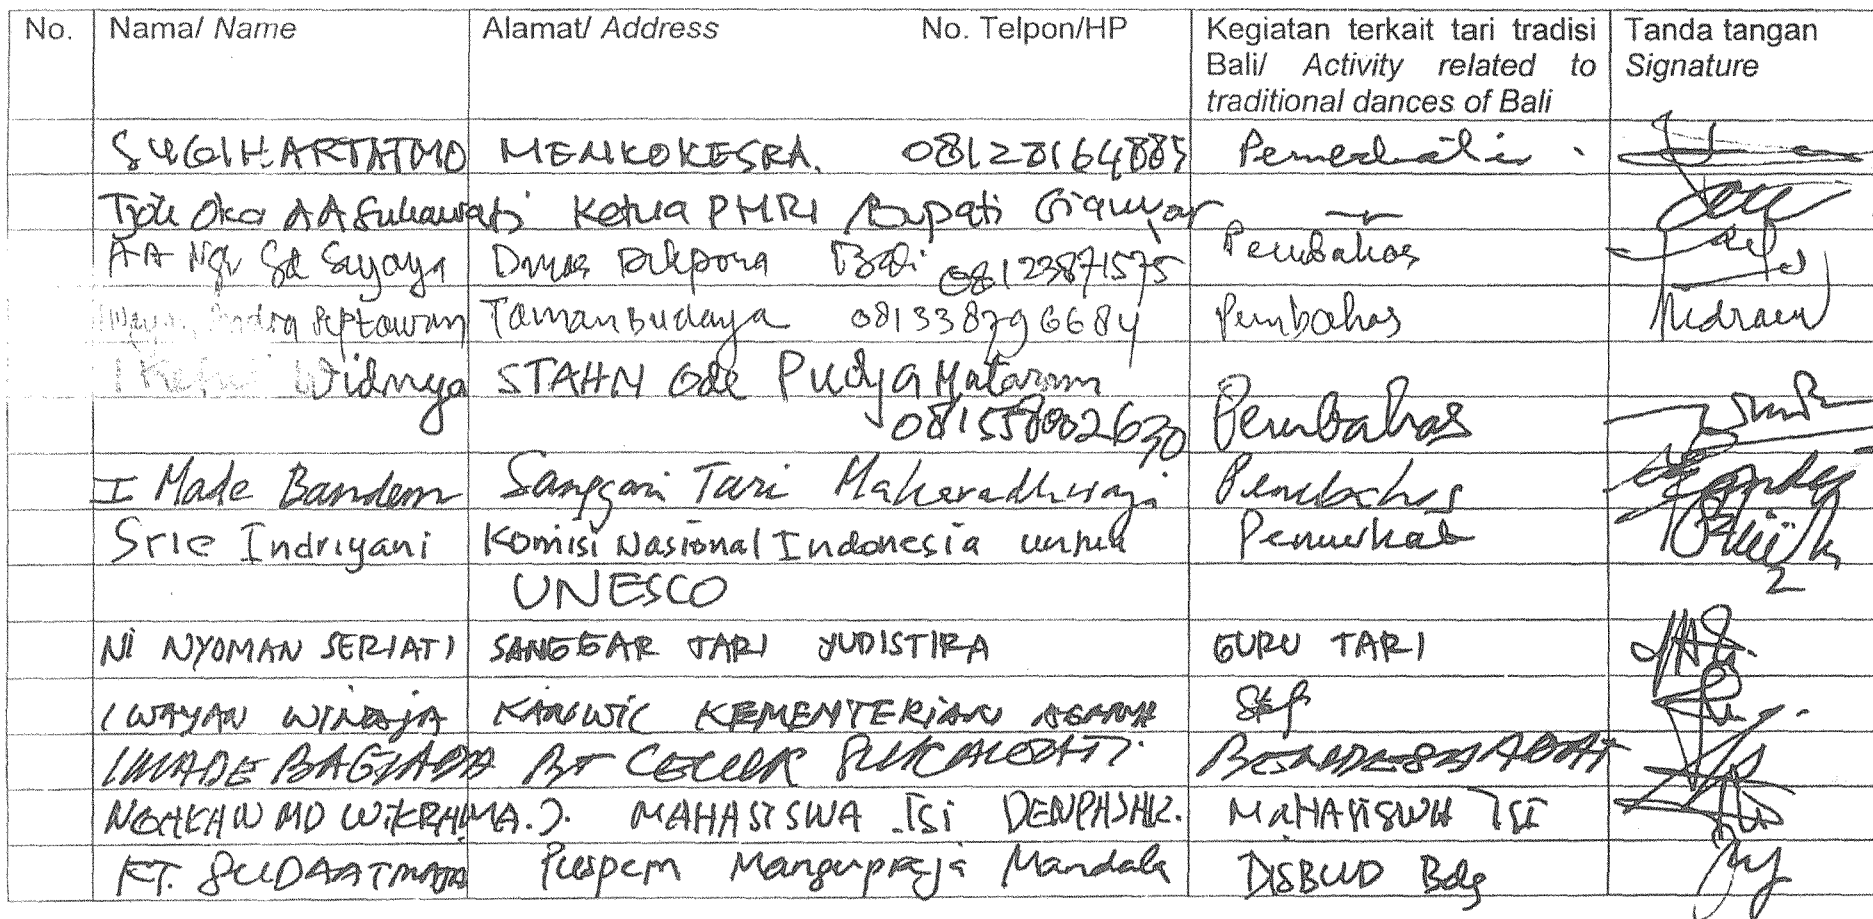 No. Nama/ Name Alamat/ Address No. Telpon/HP Kegiatan terkait tari tradisi Tanda tangan
Bali/ Activity related to Signature
traditional dances of Bali
SUGIHARTATMO MENKOKESRA. 08128164885
Oka AA Sukawati Ketua PHRI Bupati Gianyar
AA Ngr Gd Sujaya Dinas Dikpora Bali 08123871575 Pembahas
Septawan Taman Budaya 081338796684 Pembahas
I Ketut Widnya STAHN Gde Pudja Mataram
081558002630 Pembahas
I Made Bandem Sanggar Tari Makaradhwaja Pembahas
Srie Indriyani Komisi Nasional Indonesia untuk
UNESCO
NI NYOMAN SERIATI SANGGAR TARI YUDISTIRA GURU TARI
I WAYAN WINAJA KANWIL KEMENTERIAN AGAMA
I MADE BAGIADA BR CELUK SUKAWATI. BENDESA ADAT
NGAKAN MD WIKRAMA.J. MAHASISWA ISI DENPASAR. MAHASISWA ISI
KT. SUDAATMAJA Puspem Mangupraja Mandala DISBUD Bdg